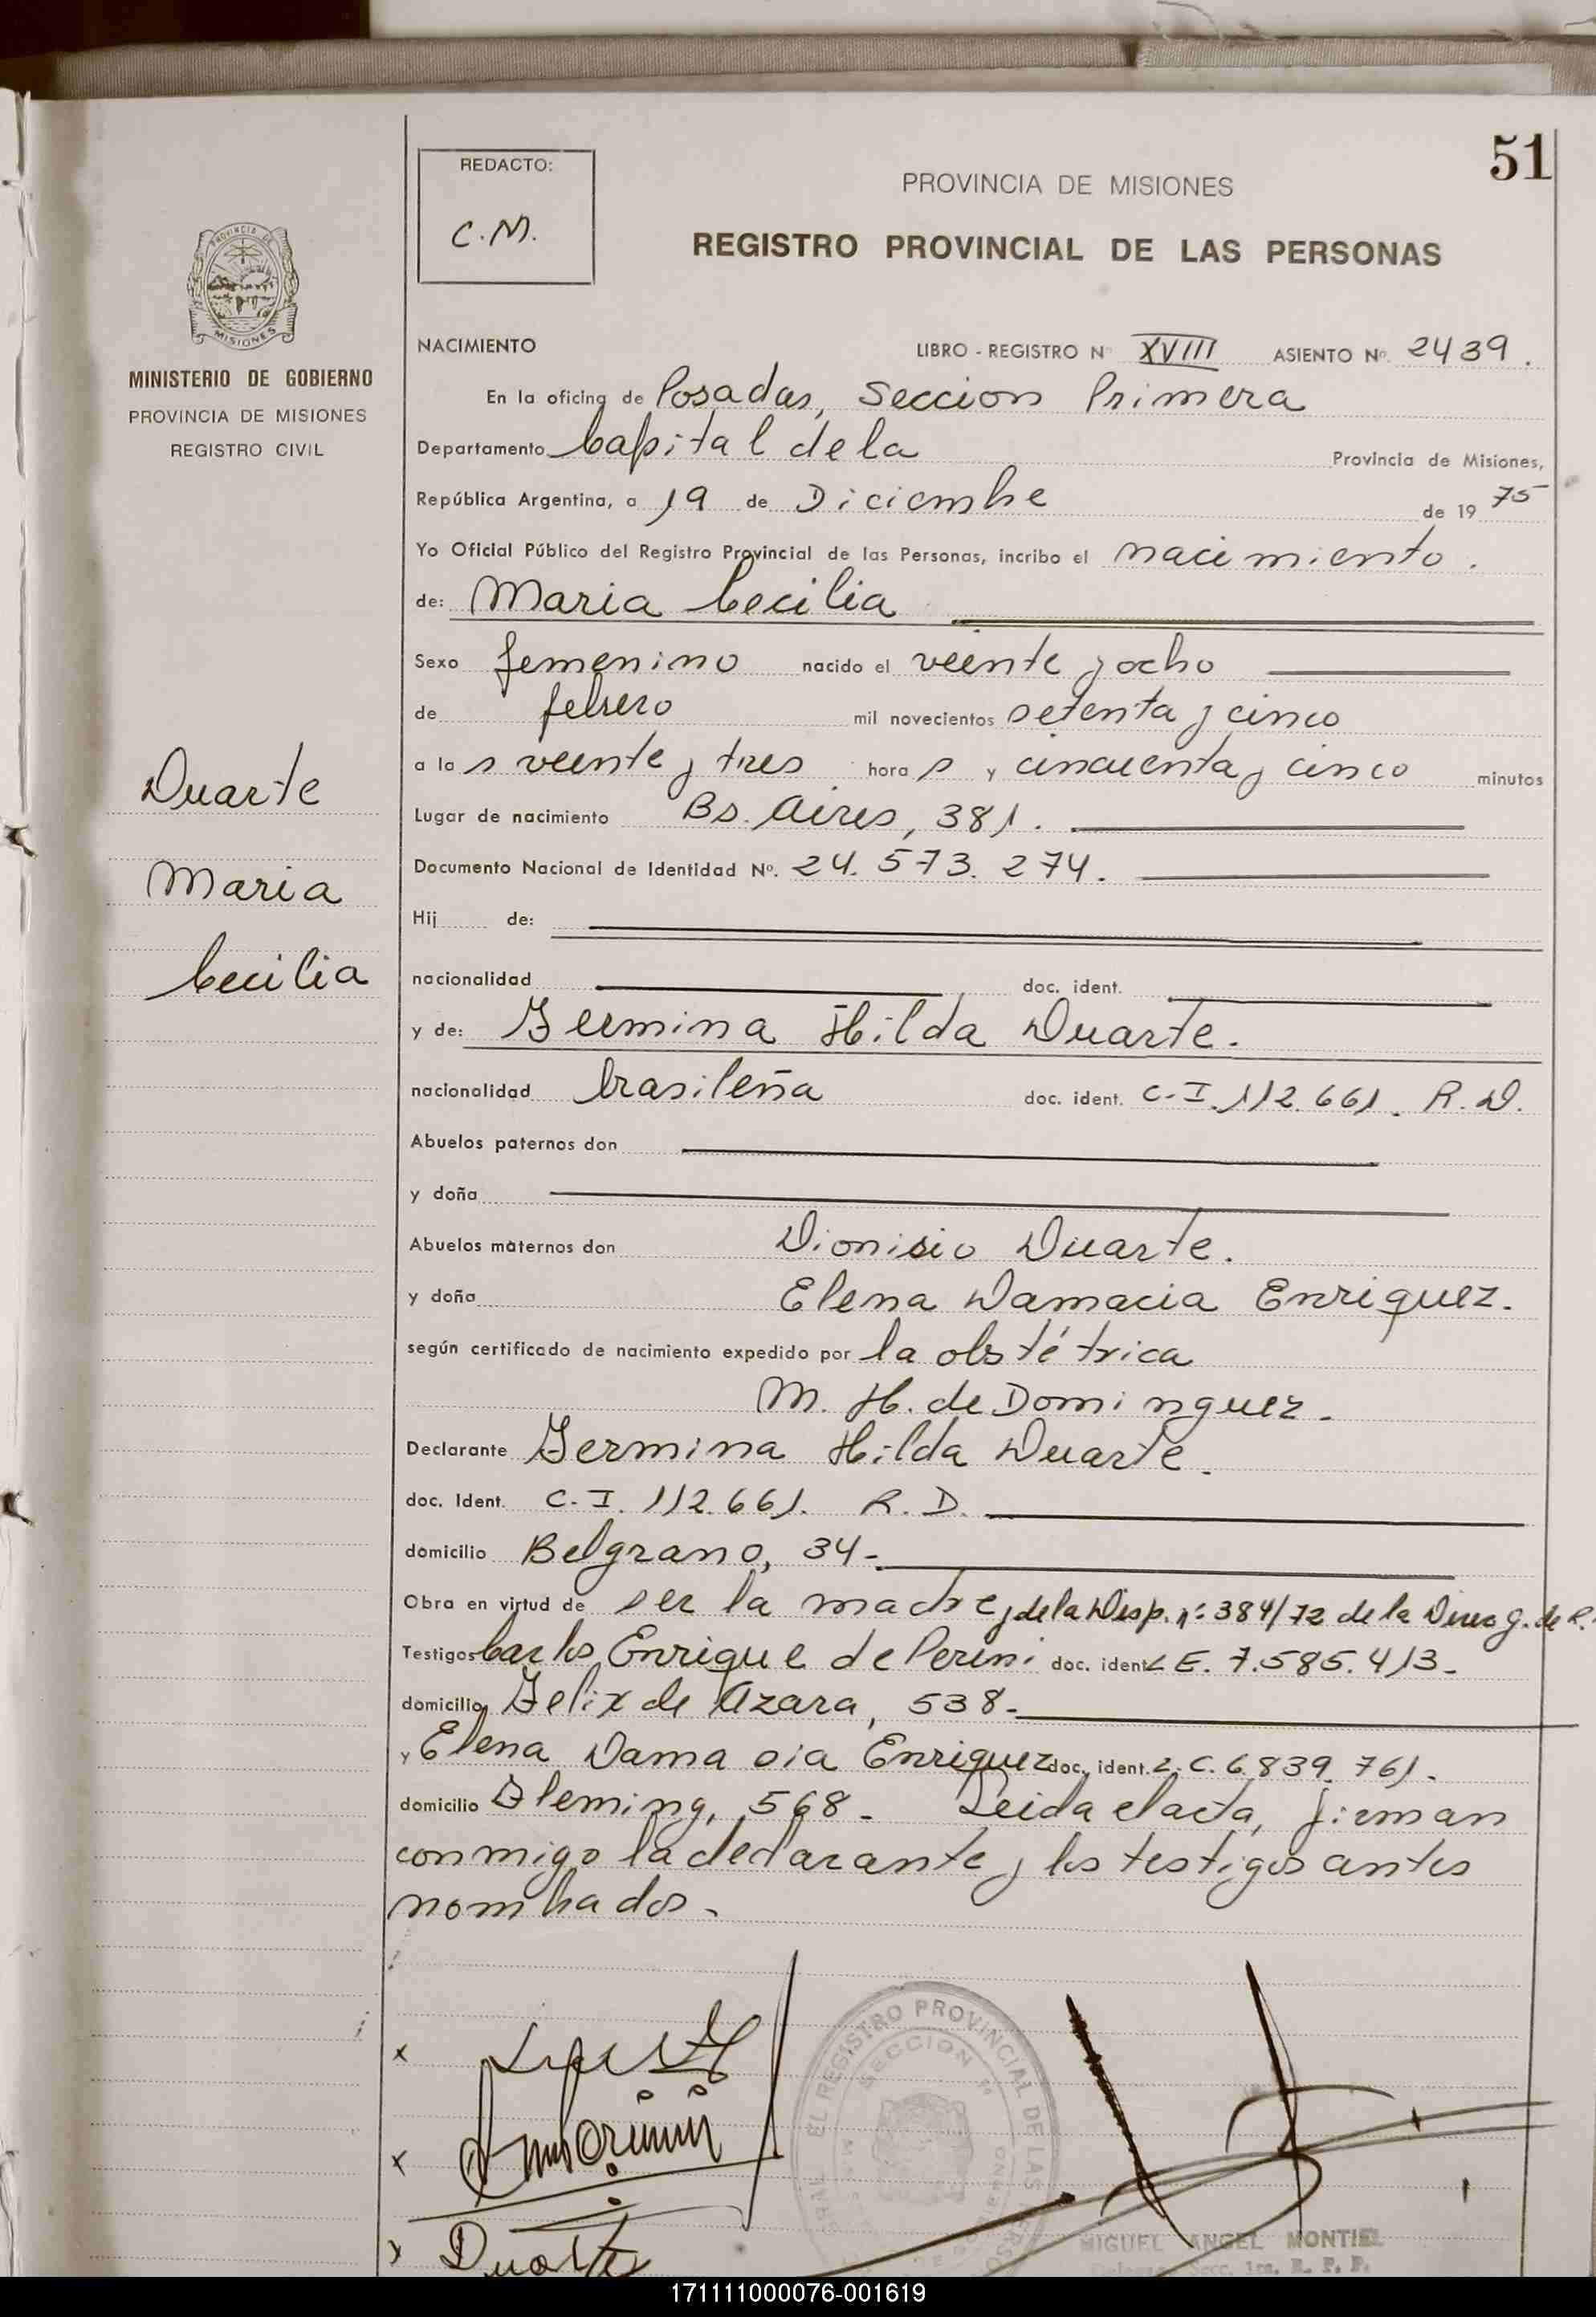 51
REDACTO:
C.M.
PROVINCIA DE MISIONES
REGISTRO PROVINCIAL DE LAS PERSONAS
PROVINCIA DE
MISIONES
MINISTERIO DE GOBIERNO
PROVINCIA DE MISIONES
REGISTRO CIVIL
Duarte
Maria
Cecilia
NACIMIENTO LIBRO - REGISTRO Nº XVIII ASIENTO Nº. 2439.
En la oficina de Posadas, Seccion Primera
Departamento Capital de la Provincia de Misiones,
República Argentina, a 19 de Diciembre de 1975
Yo Oficial Público del Registro Provincial de las Personas, incribo el nacimiento.
de: Maria Cecilia
Sexo femenino nacido el veinte y ocho
de febrero mil novecientos setenta y cinco
a las veinte y tres horas y cincuenta y cinco minutos
Lugar de nacimiento Bs. Aires, 381.
Documento Nacional de Identidad Nº. 24.573.274.
Hij de:
nacionalidad doc. ident.
y de: Fermina Hilda Duarte.
nacionalidad brasileña doc. ident. C.I. 112.661. R.D.
Abuelos paternos don
y doña
Abuelos maternos don Dionisio Duarte.
y doña Elena Damacia Enriquez.
según certificado de nacimiento expedido por la obstétrica
M. H. de Dominguez.
Declarante Fermina Hilda Duarte.
doc. Ident. C.I. 112.661. R.D.
domicilio Belgrano, 34-
Obra en virtud de ser la madre y de la Disp. nº: 384/72 de la Direc g. de R.
Testigos Carlos Enrique de Perini doc. ident L E. 7.585.413-
domicilio Felix de Azara, 538-
y Elena Damasia Enriquez doc. ident. L.C. 6.839.761.
domicilio Fleming, 568- Leida el acta, firman
conmigo la declarante y los testigos antes
nombrados-
x
x
x Duarte
EL REGISTRO PROVINCIAL DE LAS
SECCION
MIGUEL ANGEL MONTIEL
Secc. 1ra. R. P. P.
171111000076-001619